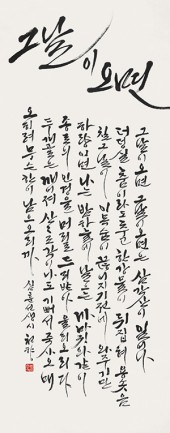 그날이 오면
그날이 오면 그날이 오며는 삼각산이 일어나
더덩실 춤이라도 추고 한강물이 뒤집혀 용솟음
칠 그날이 이 목숨이 끊어지기 전에 와주기만
하량이면 나는 밤하늘에 날으는 까마귀와 같이
종로의 인경을 머리로 드리받아 울리오리다
두개골은 깨어져 산산조각이 나도 기뻐서 죽사오매
오히려 무슨 한이 남으오리까 심훈선생시